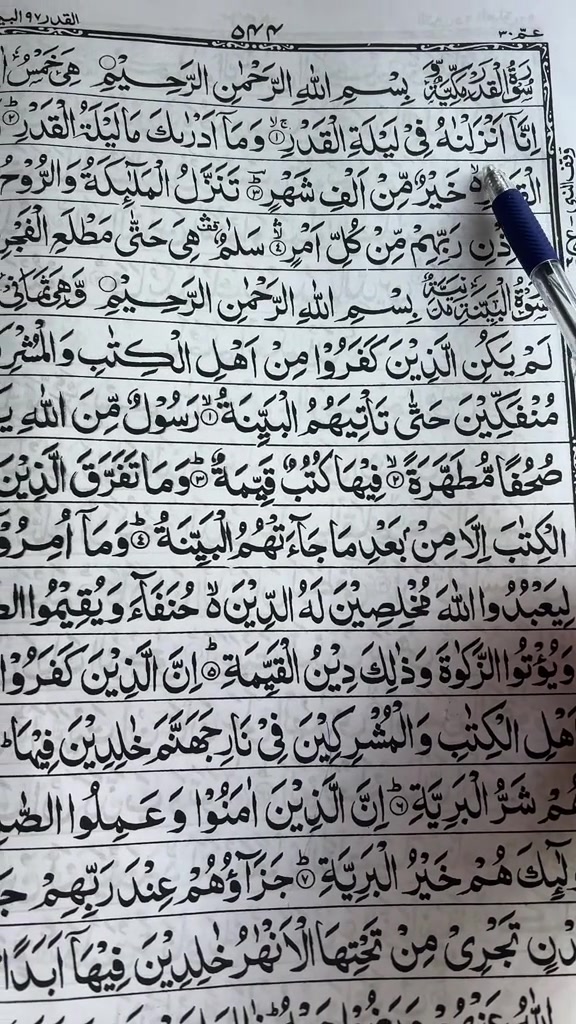 القدر ٩٧ البي
٥٤٤
عـمّ ٣٠
سُوْرَةُ الْقَدْرِ مَكِّيَّةٌ بِسْمِ اللّٰهِ الرَّحْمٰنِ الرَّحِيْمِ هِيَ خَمْسُ
اِنَّاۤ اَنْزَلْنٰهُ فِيْ لَيْلَةِ الْقَدْرِ ۚۖ ١ وَمَاۤ اَدْرٰىكَ مَا لَيْلَةُ الْقَدْرِ ؕ ٢
خَيْرٌ مِّنْ اَلْفِ شَهْرٍ ؕ ٣ تَنَزَّلُ الْمَلٰٓئِكَةُ وَالرُّوْحُ
رَبِّهِمْ مِّنْ كُلِّ اَمْرٍ ۙ ٤ سَلٰمٌ ۛ هِيَ حَتّٰى مَطْلَعِ الْفَجْرِ
سُوْرَةُ الْبَيِّنَةِ مَدَنِيَّةٌ بِسْمِ اللّٰهِ الرَّحْمٰنِ الرَّحِيْمِ وَّهِيَ ثَمَانِيْ
لَمْ يَكُنِ الَّذِيْنَ كَفَرُوْا مِنْ اَهْلِ الْكِتٰبِ وَالْمُشْرِ
مُنْفَكِّيْنَ حَتّٰى تَاْتِيَهُمُ الْبَيِّنَةُ ۙ ١ رَسُوْلٌ مِّنَ اللّٰهِ يَ
صُحُفًا مُّطَهَّرَةً ۙ ٢ فِيْهَا كُتُبٌ قَيِّمَةٌ ؕ ٣ وَمَا تَفَرَّقَ الَّذِيْنَ
الْكِتٰبَ اِلَّا مِنْۢ بَعْدِ مَا جَآءَتْهُمُ الْبَيِّنَةُ ؕ ٤ وَمَاۤ اُمِرُوْ
لِيَعْبُدُوا اللّٰهَ مُخْلِصِيْنَ لَهُ الدِّيْنَ ۙ۬ حُنَفَآءَ وَيُقِيْمُوا الص
وَيُؤْتُوا الزَّكٰوةَ وَذٰلِكَ دِيْنُ الْقَيِّمَةِ ؕ ٥ اِنَّ الَّذِيْنَ كَفَرُوْا
اَهْلِ الْكِتٰبِ وَالْمُشْرِكِيْنَ فِيْ نَارِ جَهَنَّمَ خٰلِدِيْنَ فِيْهَا ؕ
هُمْ شَرُّ الْبَرِيَّةِ ؕ ٦ اِنَّ الَّذِيْنَ اٰمَنُوْا وَعَمِلُوا الصّٰ
ولٰٓئِكَ هُمْ خَيْرُ الْبَرِيَّةِ ؕ ٧ جَزَآؤُهُمْ عِنْدَ رَبِّهِمْ جَ
دْنٍ تَجْرِيْ مِنْ تَحْتِهَا الْاَنْهٰرُ خٰلِدِيْنَ فِيْهَاۤ اَبَدًا